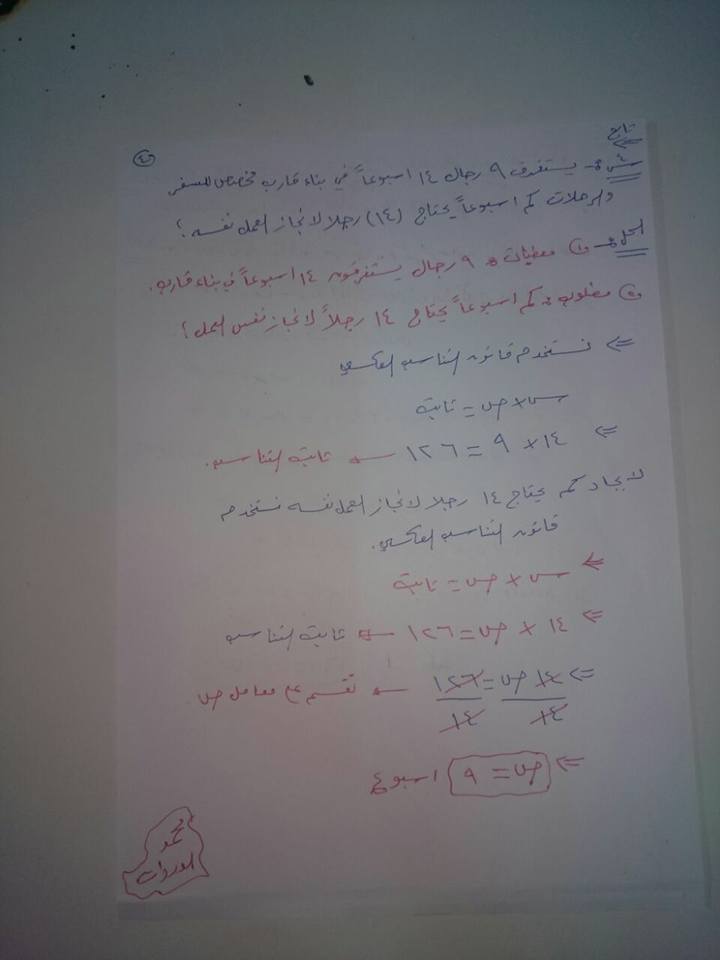 تابع
٤٥
مثال: يستغرق ٩ رجال ١٤ اسبوعاً في بناء قارب مخصص للسفر
والرحلات كم اسبوعاً يحتاج (١٤) رجلا لانجاز العمل نفسه؟
الحل: ① معطيات: ٩ رجال يستغرقون ١٤ اسبوعاً في بناء قارب.
② مطلوب: كم اسبوعاً يحتاج ١٤ رجلاً لانجاز نفس العمل؟
⇐ نستخدم قانون التناسب العكسي
س × ص = ثابت
⇐ ١٤ × ٩ = ١٢٦ ← ثابت التناسب.
لايجاد كم يحتاج ١٤ رجلا لانجاز العمل نفسه نستخدم
قانون التناسب العكسي.
⇐ س × ص = ثابت
⇐ ١٤ × ص = ١٢٦ ← ثابت التناسب
⇐ ١٤ ص = ١٢٦ ← نقسم على معامل ص
١٤ ١٤
⇐ ص = ٩ اسبوع
محمد
الوردات